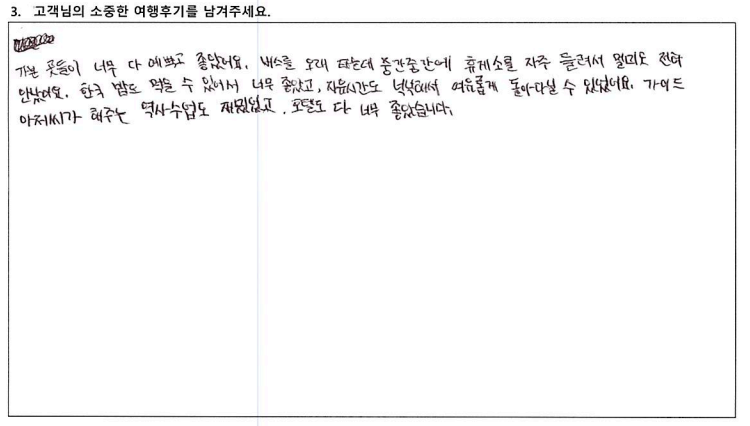 3. 고객님의 소중한 여행후기를 남겨주세요.
가본 곳들이 너무 다 예쁘고 좋았어요. 버스를 오래 타는데 중간중간에 휴게소를 자주 들려서 멀미도 전혀
안났어요. 한국 밥도 먹을 수 있어서 너무 좋았고, 자유시간도 넉넉해서 여유롭게 돌아다닐 수 있었어요. 가이드
아저씨가 해주는 역사수업도 재밌었고, 호텔도 다 너무 좋았습니다.